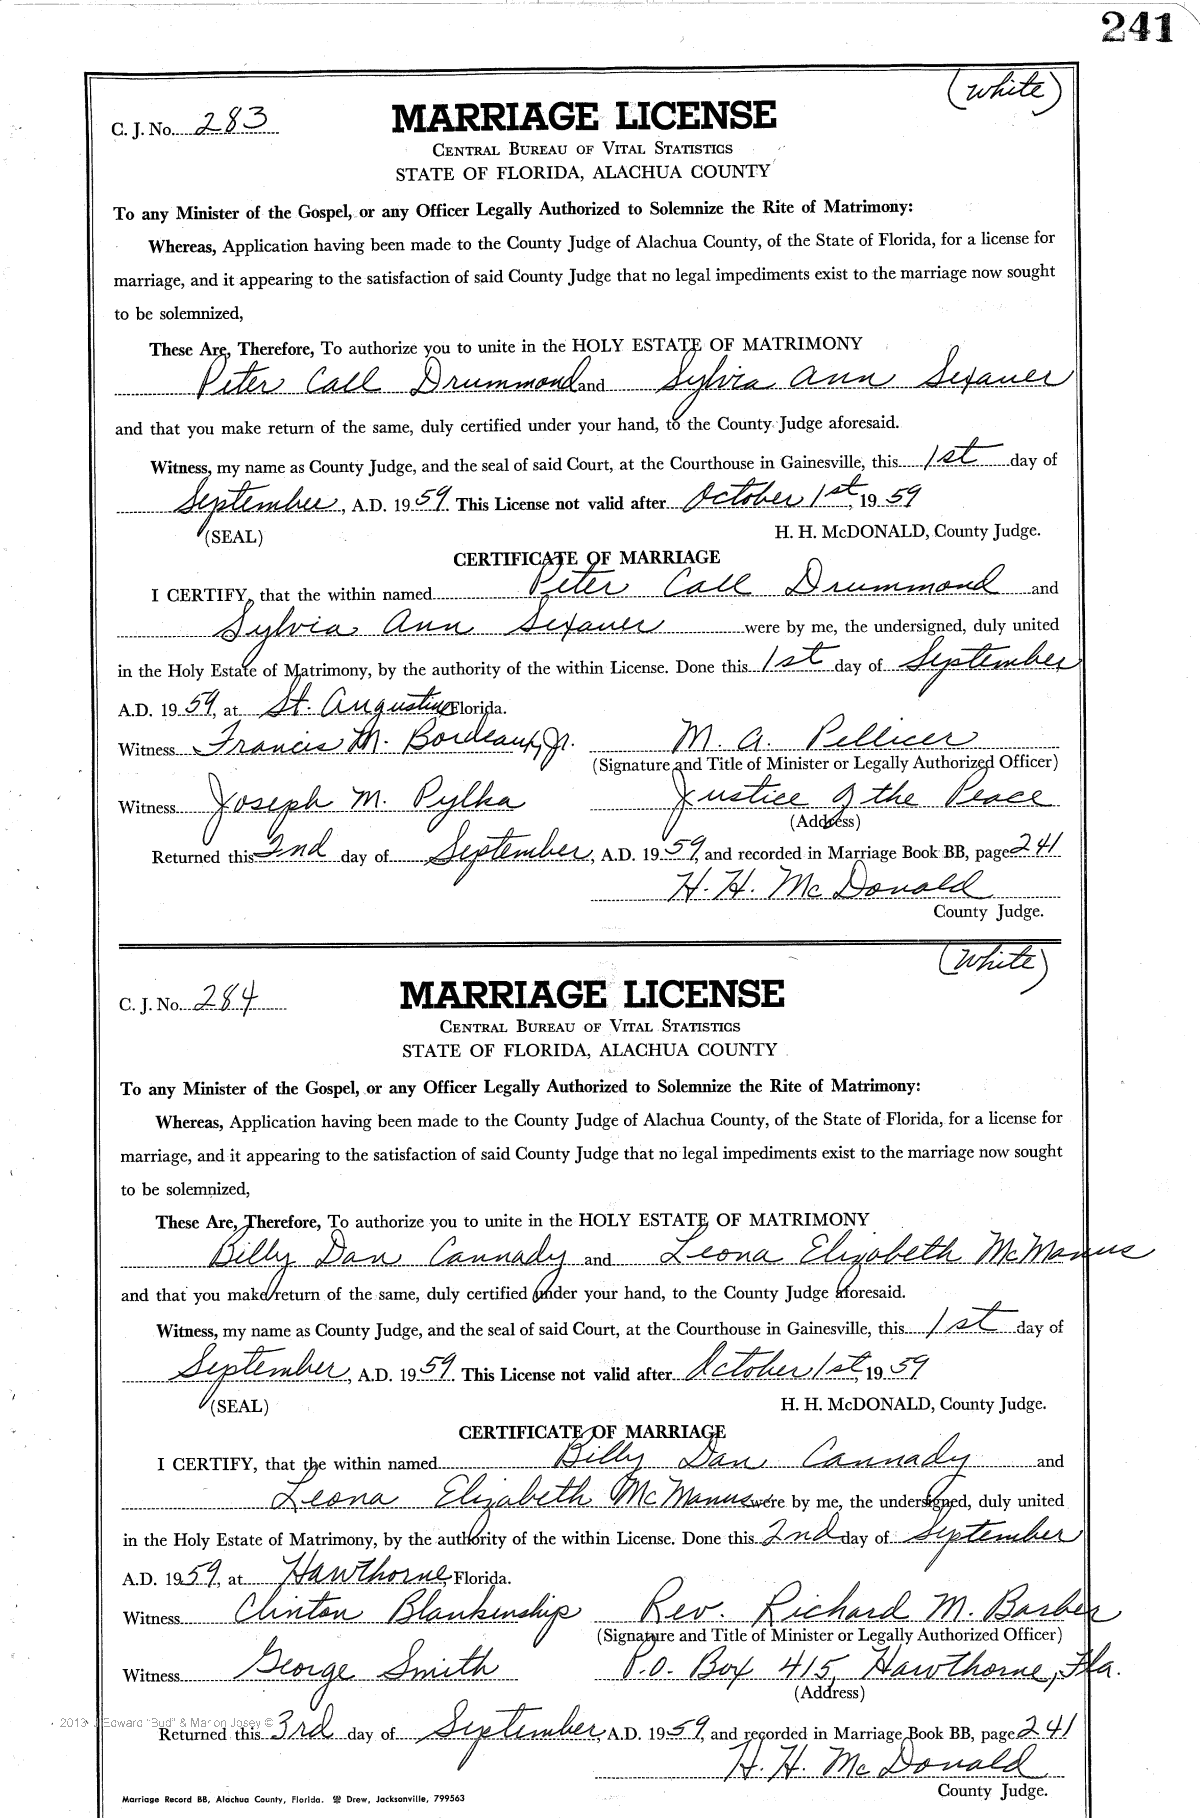 241
(White)
C. J. No. 283
MARRIAGE LICENSE
CENTRAL BUREAU OF VITAL STATISTICS
STATE OF FLORIDA, ALACHUA COUNTY
To any Minister of the Gospel, or any Officer Legally Authorized to Solemnize the Rite of Matrimony:
Whereas, Application having been made to the County Judge of Alachua County, of the State of Florida, for a license for
marriage, and it appearing to the satisfaction of said County Judge that no legal impediments exist to the marriage now sought
to be solemnized,
These Are, Therefore, To authorize you to unite in the HOLY ESTATE OF MATRIMONY
Peter Call Drummond and Sylvia Ann Sexauer
and that you make return of the same, duly certified under your hand, to the County Judge aforesaid.
Witness, my name as County Judge, and the seal of said Court, at the Courthouse in Gainesville, this 1st day of
September, A.D. 1959. This License not valid after October 1st, 1959
(SEAL) H. H. McDONALD, County Judge.
CERTIFICATE OF MARRIAGE
I CERTIFY, that the within named Peter Call Drummond and
Sylvia Ann Sexauer were by me, the undersigned, duly united
in the Holy Estate of Matrimony, by the authority of the within License. Done this 1st day of September
A.D. 1959, at St. Augustine, Florida.
Witness Francis M. Bordeaux, Jr. M. A. Pellicer
(Signature and Title of Minister or Legally Authorized Officer)
Witness Joseph M. Pylka Justice of the Peace
(Address)
Returned this 2nd day of September, A.D. 1959, and recorded in Marriage Book BB, page 241
H. H. McDonald
County Judge.
(White)
C. J. No. 284
MARRIAGE LICENSE
CENTRAL BUREAU OF VITAL STATISTICS
STATE OF FLORIDA, ALACHUA COUNTY
To any Minister of the Gospel, or any Officer Legally Authorized to Solemnize the Rite of Matrimony:
Whereas, Application having been made to the County Judge of Alachua County, of the State of Florida, for a license for
marriage, and it appearing to the satisfaction of said County Judge that no legal impediments exist to the marriage now sought
to be solemnized,
These Are, Therefore, To authorize you to unite in the HOLY ESTATE OF MATRIMONY
Billy Dan Cannady and Leona Elizabeth McManus
and that you make return of the same, duly certified under your hand, to the County Judge aforesaid.
Witness, my name as County Judge, and the seal of said Court, at the Courthouse in Gainesville, this 1st day of
September, A.D. 1959. This License not valid after October 1st, 1959
(SEAL) H. H. McDONALD, County Judge.
CERTIFICATE OF MARRIAGE
I CERTIFY, that the within named Billy Dan Cannady and
Leona Elizabeth McManus were by me, the undersigned, duly united
in the Holy Estate of Matrimony, by the authority of the within License. Done this 2nd day of September
A.D. 1959, at Hawthorne, Florida.
Witness Clinton Blankinship Rev. Richard M. Barber
(Signature and Title of Minister or Legally Authorized Officer)
Witness George Smith P.O. Box 415, Hawthorne, Fla.
(Address)
2013 J Edward "Bud" & Marion Josey ©
Returned this 3rd day of September, A.D. 1959, and recorded in Marriage Book BB, page 241
H. H. McDonald
County Judge.
Marriage Record BB, Alachua County, Florida. Drew, Jacksonville, 799563